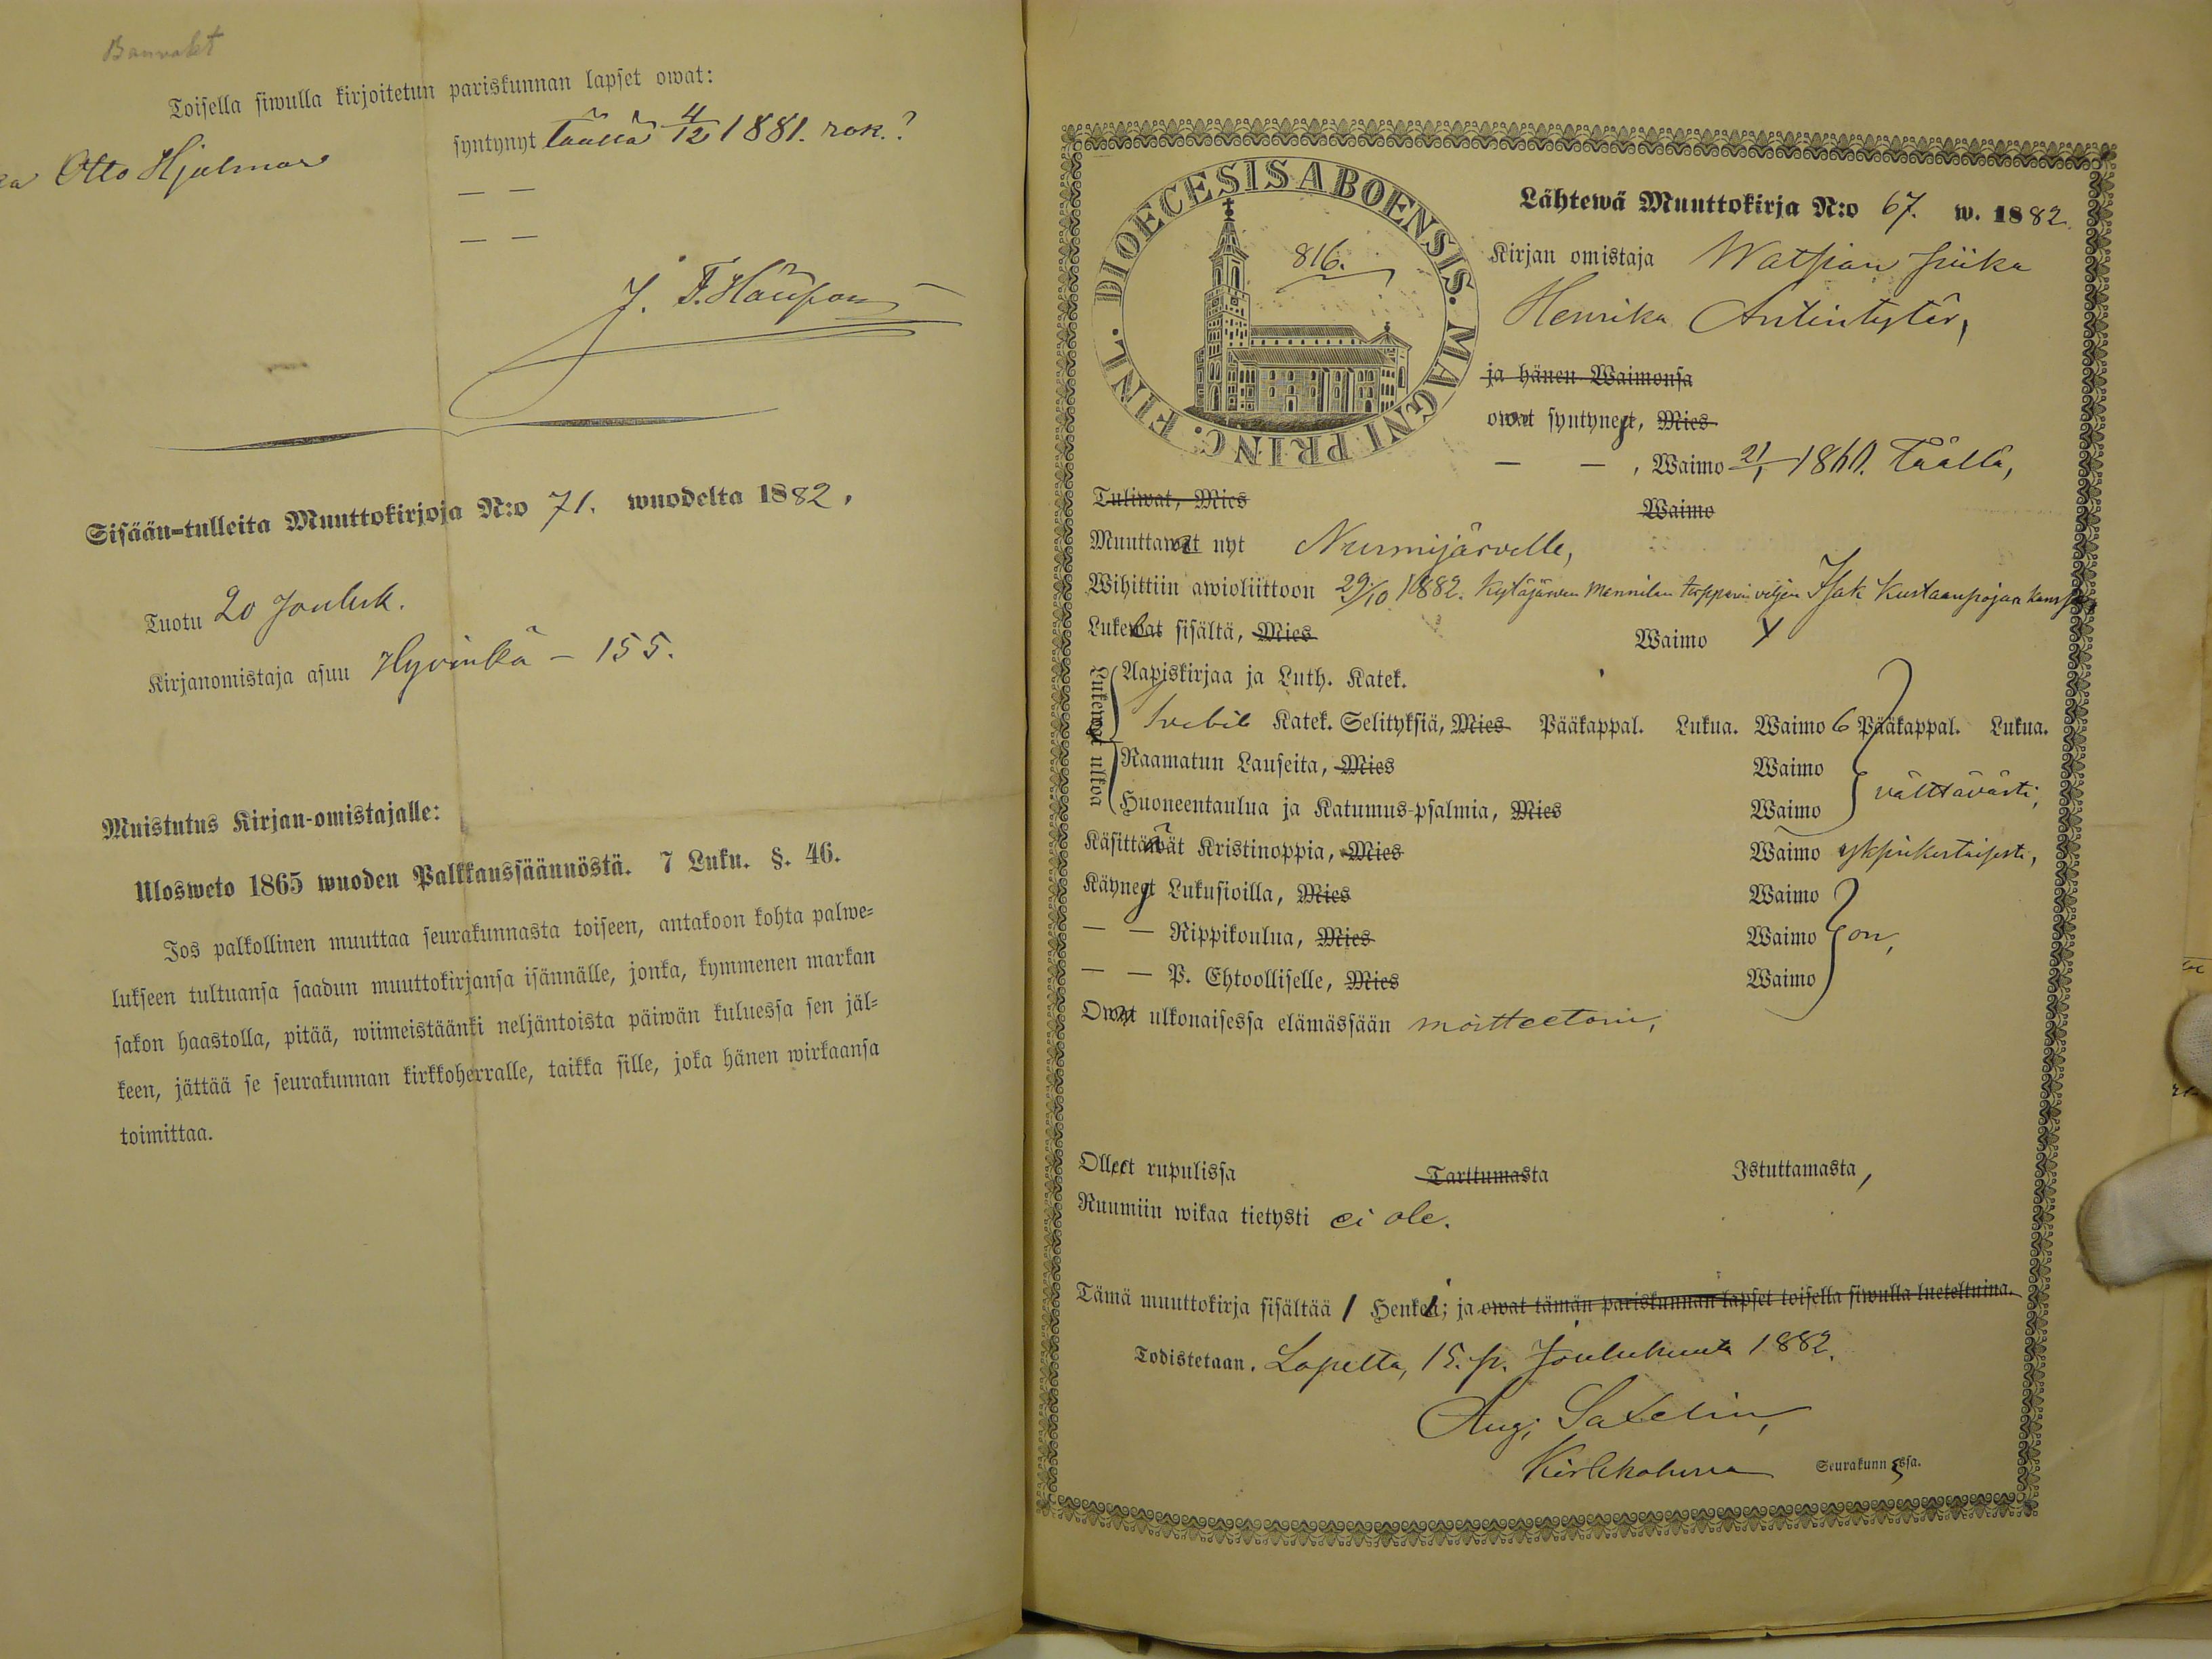 Banvakt
Toisella siwulla kirjoitetun pariskunnan lapset owat:
Otto Hjalmar syntynyt täällä 4/12 1881. rok.?
— —
— —
Sisään-tulleita Muuttokirjoja N:o 71. wuodelta 1882.
Tuotu 20 Jouluk.
Kirjanomistaja asuu Hyvinkä – 155.
Muistutus Kirjan-omistajalle:
Ulosweto 1865 wuoden Palkkaussäännöstä. 7 Luku. §. 46.
Jos palkollinen muuttaa seurakunnasta toiseen, antakoon kohta palwe=
lukseen tultuansa saadun muuttokirjansa isännälle, jonka, kymmenen markan
sakon haastolla, pitää, wiimeistäänki neljäntoista päiwän kuluessa sen jäl=
keen, jättää se seurakunnan kirkkoherralle, taikka sille, joka hänen wirkaansa
toimittaa.
DIOECESIS ABOENSIS. MAGNI PRINC. FINL.
816.
Lähtewä Muuttokirja N:o 67. w. 1882.
Kirjan omistaja Watsian piika
Henrika Antintytär,
ja hänen Waimonsa
owat syntynyt, Mies
— — , Waimo 21/1 1860. täällä,
Tuliwat, Mies Waimo
Muuttawat nyt Nurmijärvelle,
Wihittiin awioliittoon 29/10 1882. Kytäjärven Mannilan torpparin veljen Isak Kustaanpojan kanssa,
Lukewat sisältä, Mies Waimo Y
Lukewat ulkoa
Aapiskirjaa ja Luth. Katek.
Svebil Katek. Selityksiä, Mies Pääkappal. Lukua. Waimo 6 Pääkappal. Lukua.
Raamatun Lauseita, Mies Waimo
välttävästi,
Huoneentaulua ja Katumus-psalmia, Mies Waimo
Käsittäwät Kristinoppia, Mies Waimo yksinkertaisesti,
Käynyt Lukusioilla, Mies Waimo
— — Rippikoulua, Mies Waimo on,
— — P. Ehtoolliselle, Mies Waimo
Owat ulkonaisessa elämässään moitteetoin,
Olleet rupulissa Tarttumasta Istuttamasta,
Ruumiin wikaa tietysti ei ole.
Tämä muuttokirja sisältää 1 Henkeä; ja owat tämän pariskunnan lapset toisella siwulla lueteltuina.
Todistetaan. Lopella, 15. p. Joulukuuta 1882.
Aug. Saxelin,
Kirkkoherra Seurakunnassa.